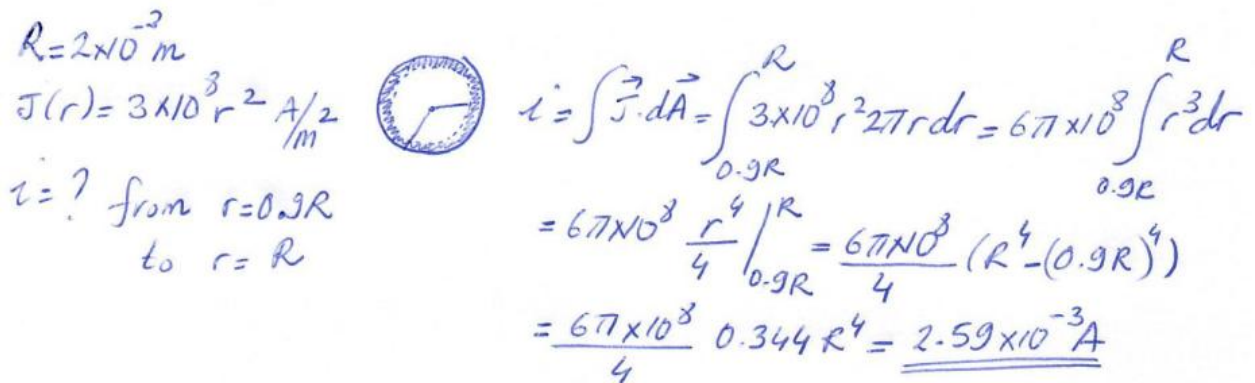 R=2×10⁻³m
J(r)=3×10⁸r² A/m²
i=? from r=0.9R
to r=R
i=∫J⃗.dA⃗=∫_{0.9R}^{R} 3×10⁸r²2πrdr=6π×10⁸∫_{0.9R}^{R} r³dr
=6π×10⁸ r⁴/4 |_{0.9R}^{R} = 6π×10⁸/4 (R⁴-(0.9R)⁴)
=6π×10⁸/4 0.344R⁴=2.59×10⁻³A